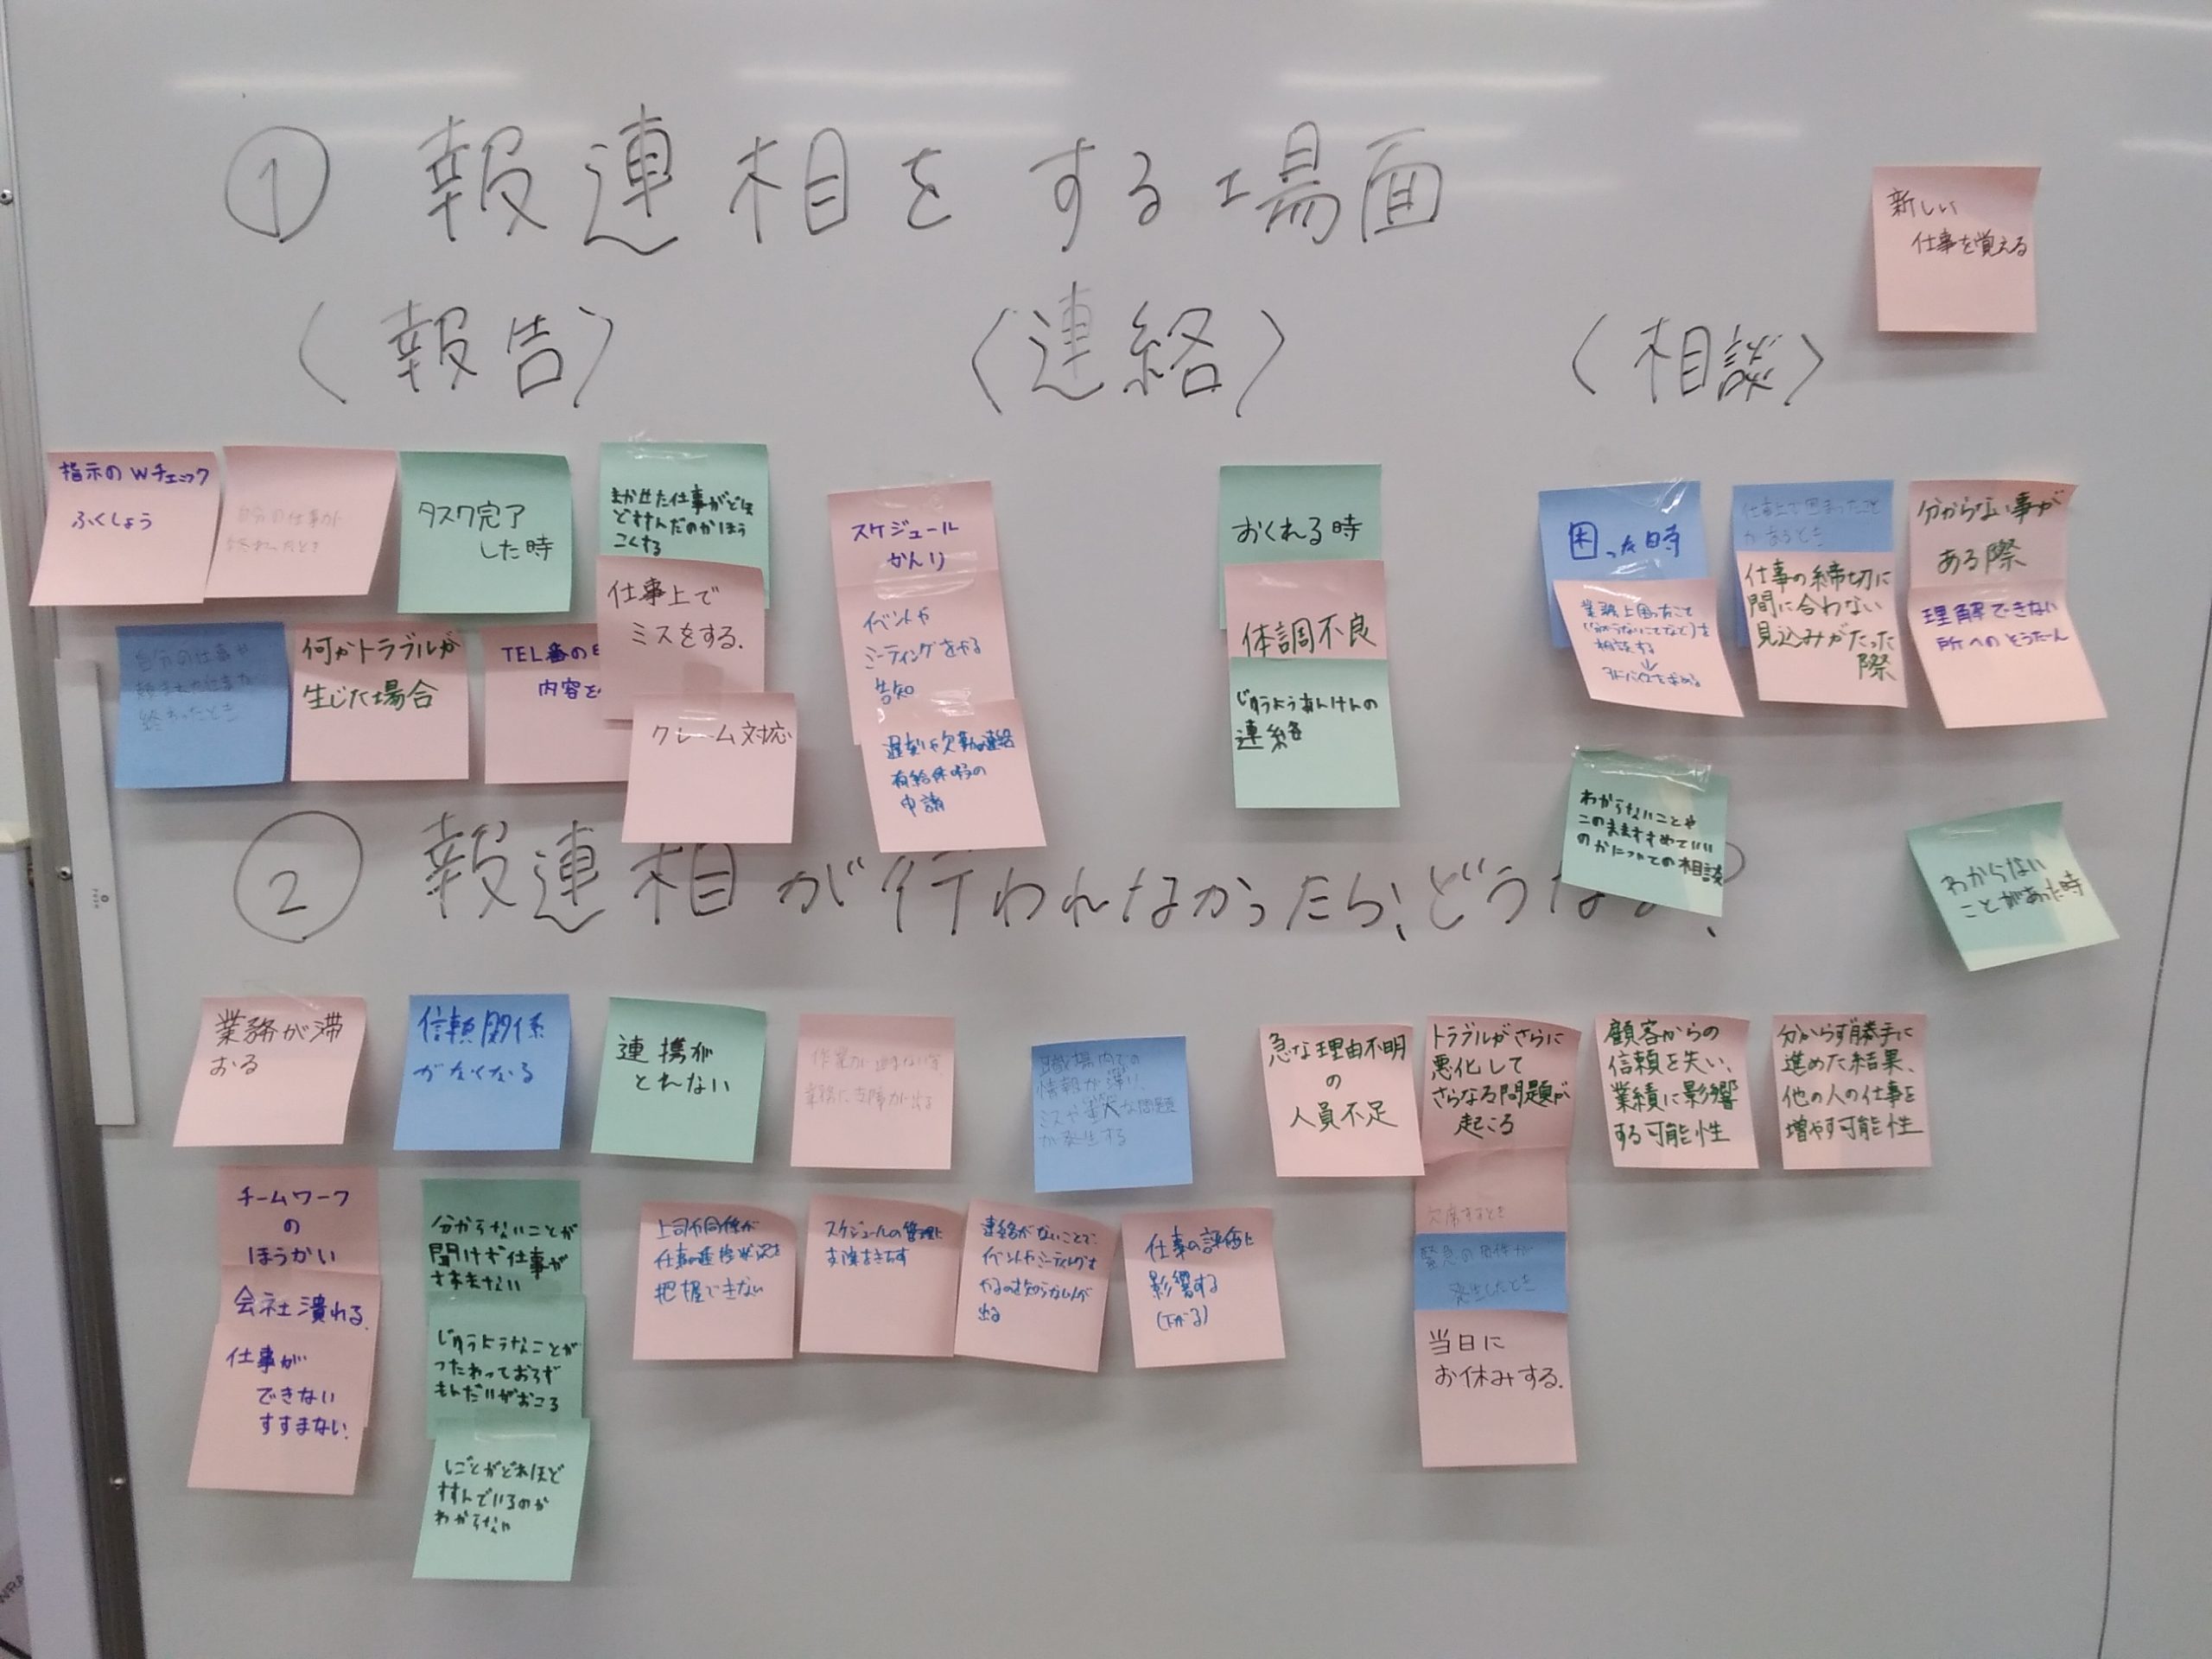 ① 報連相をする場面
新しい
仕事を覚える
〈報告〉
〈連絡〉
〈相談〉
指示のWチェック
ふくしょう
自分の仕事が
終わったとき
タスク完了
した時
まかせた仕事がどれほ
どすすんだのかほう
こくする
自分の仕事や
終わったとき
何かトラブルが
生じた場合
TEL番の
内容を
仕事上で
ミスをする.
クレーム対応
スケジュール
かんり
イベントや
ミーティングをやる
告知
遅刻や欠勤の連絡
有給休暇の
申請
おくれる時
体調不良
じゅうようあんけんの
連絡
困った時
業務上困ったこと
(分からないことなど)を
相談する
↓
アドバイスを求める
仕事上で困ったこと
があるとき
仕事の締切に
間に合わない
見込みがたった
際
分からない事が
ある際
理解できない
所へのそうだん
わからないことや
このまますすめていい
のかについての相談
わからない
ことがあった時
② 報連相が行われなかったら、どうな
業務が滞
おる
信頼関係
がなくなる
連携が
とれない
作業が進まない等
業務に支障が出る
職場内での
情報が
ミスや重大な問題
が発生する
急な理由不明
の
人員不足
トラブルがさらに
悪化して
さらなる問題が
起こる
顧客からの
信頼を失い、
業績に影響
する可能性
分からず勝手に
進めた結果、
他の人の仕事を
増やす可能性
チームワーク
の
ほうかい
会社潰れる.
仕事が
できない
すすまない.
分からないことが
聞けず仕事が
すすまない
じゅうようなことが
つたわっておらず
もんだいがおこる
しごとがどれほど
すすんでいるのか
わからない
上司や同僚が
仕事の進捗状況を
把握できない
スケジュールの管理に
支障をきたす
連絡がないことで、
イベントやミーティングを
やるのを知らない人が
出る
仕事の評価に
影響する
(下がる)
欠席するとき
緊急の用件が
発生したとき
当日に
お休みする.